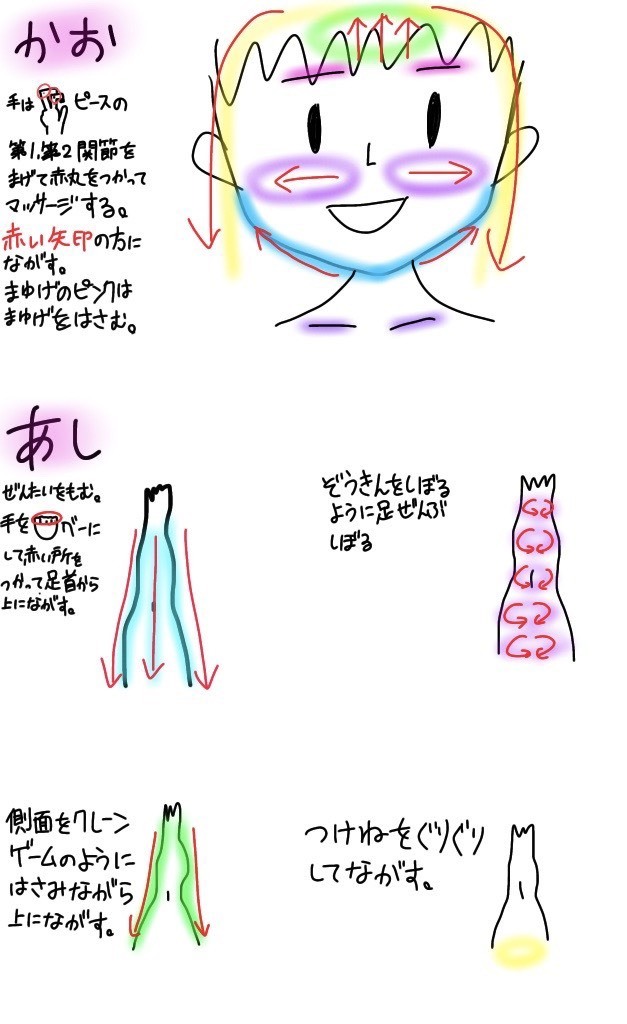 かお
手は ピースの
第1、第2関節を
まげて赤丸をつかって
マッサージする。
赤い矢印の方に
ながす。
まゆげのピンクは
まゆげをはさむ。
あし
ぜんたいをもむ。
手を グーに
して赤い所を
つかって足首から
上にながす。
ぞうきんをしぼる
ように足ぜんぶ
しぼる
側面をクレーン
ゲームのように
はさみながら
上にながす。
つけねをぐりぐり
してながす。